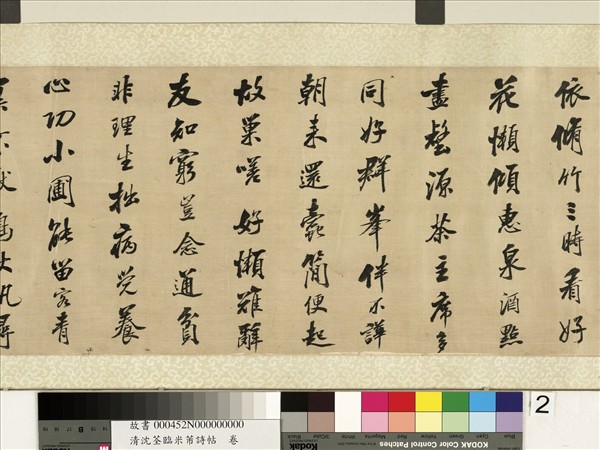 依脩竹三時看好
花懶傾惠泉酒點
盡壑源茶主席多
同好群峯伴不譁
朝来還蠹簡便起
故巢嗟好懶難辭
友知窮豈念通貧
非理生拙病覺養
心功小圃能留客青
故書 000452N000000000
清沈荃臨米芾詩帖 卷
KODAK Color Control Patches
2